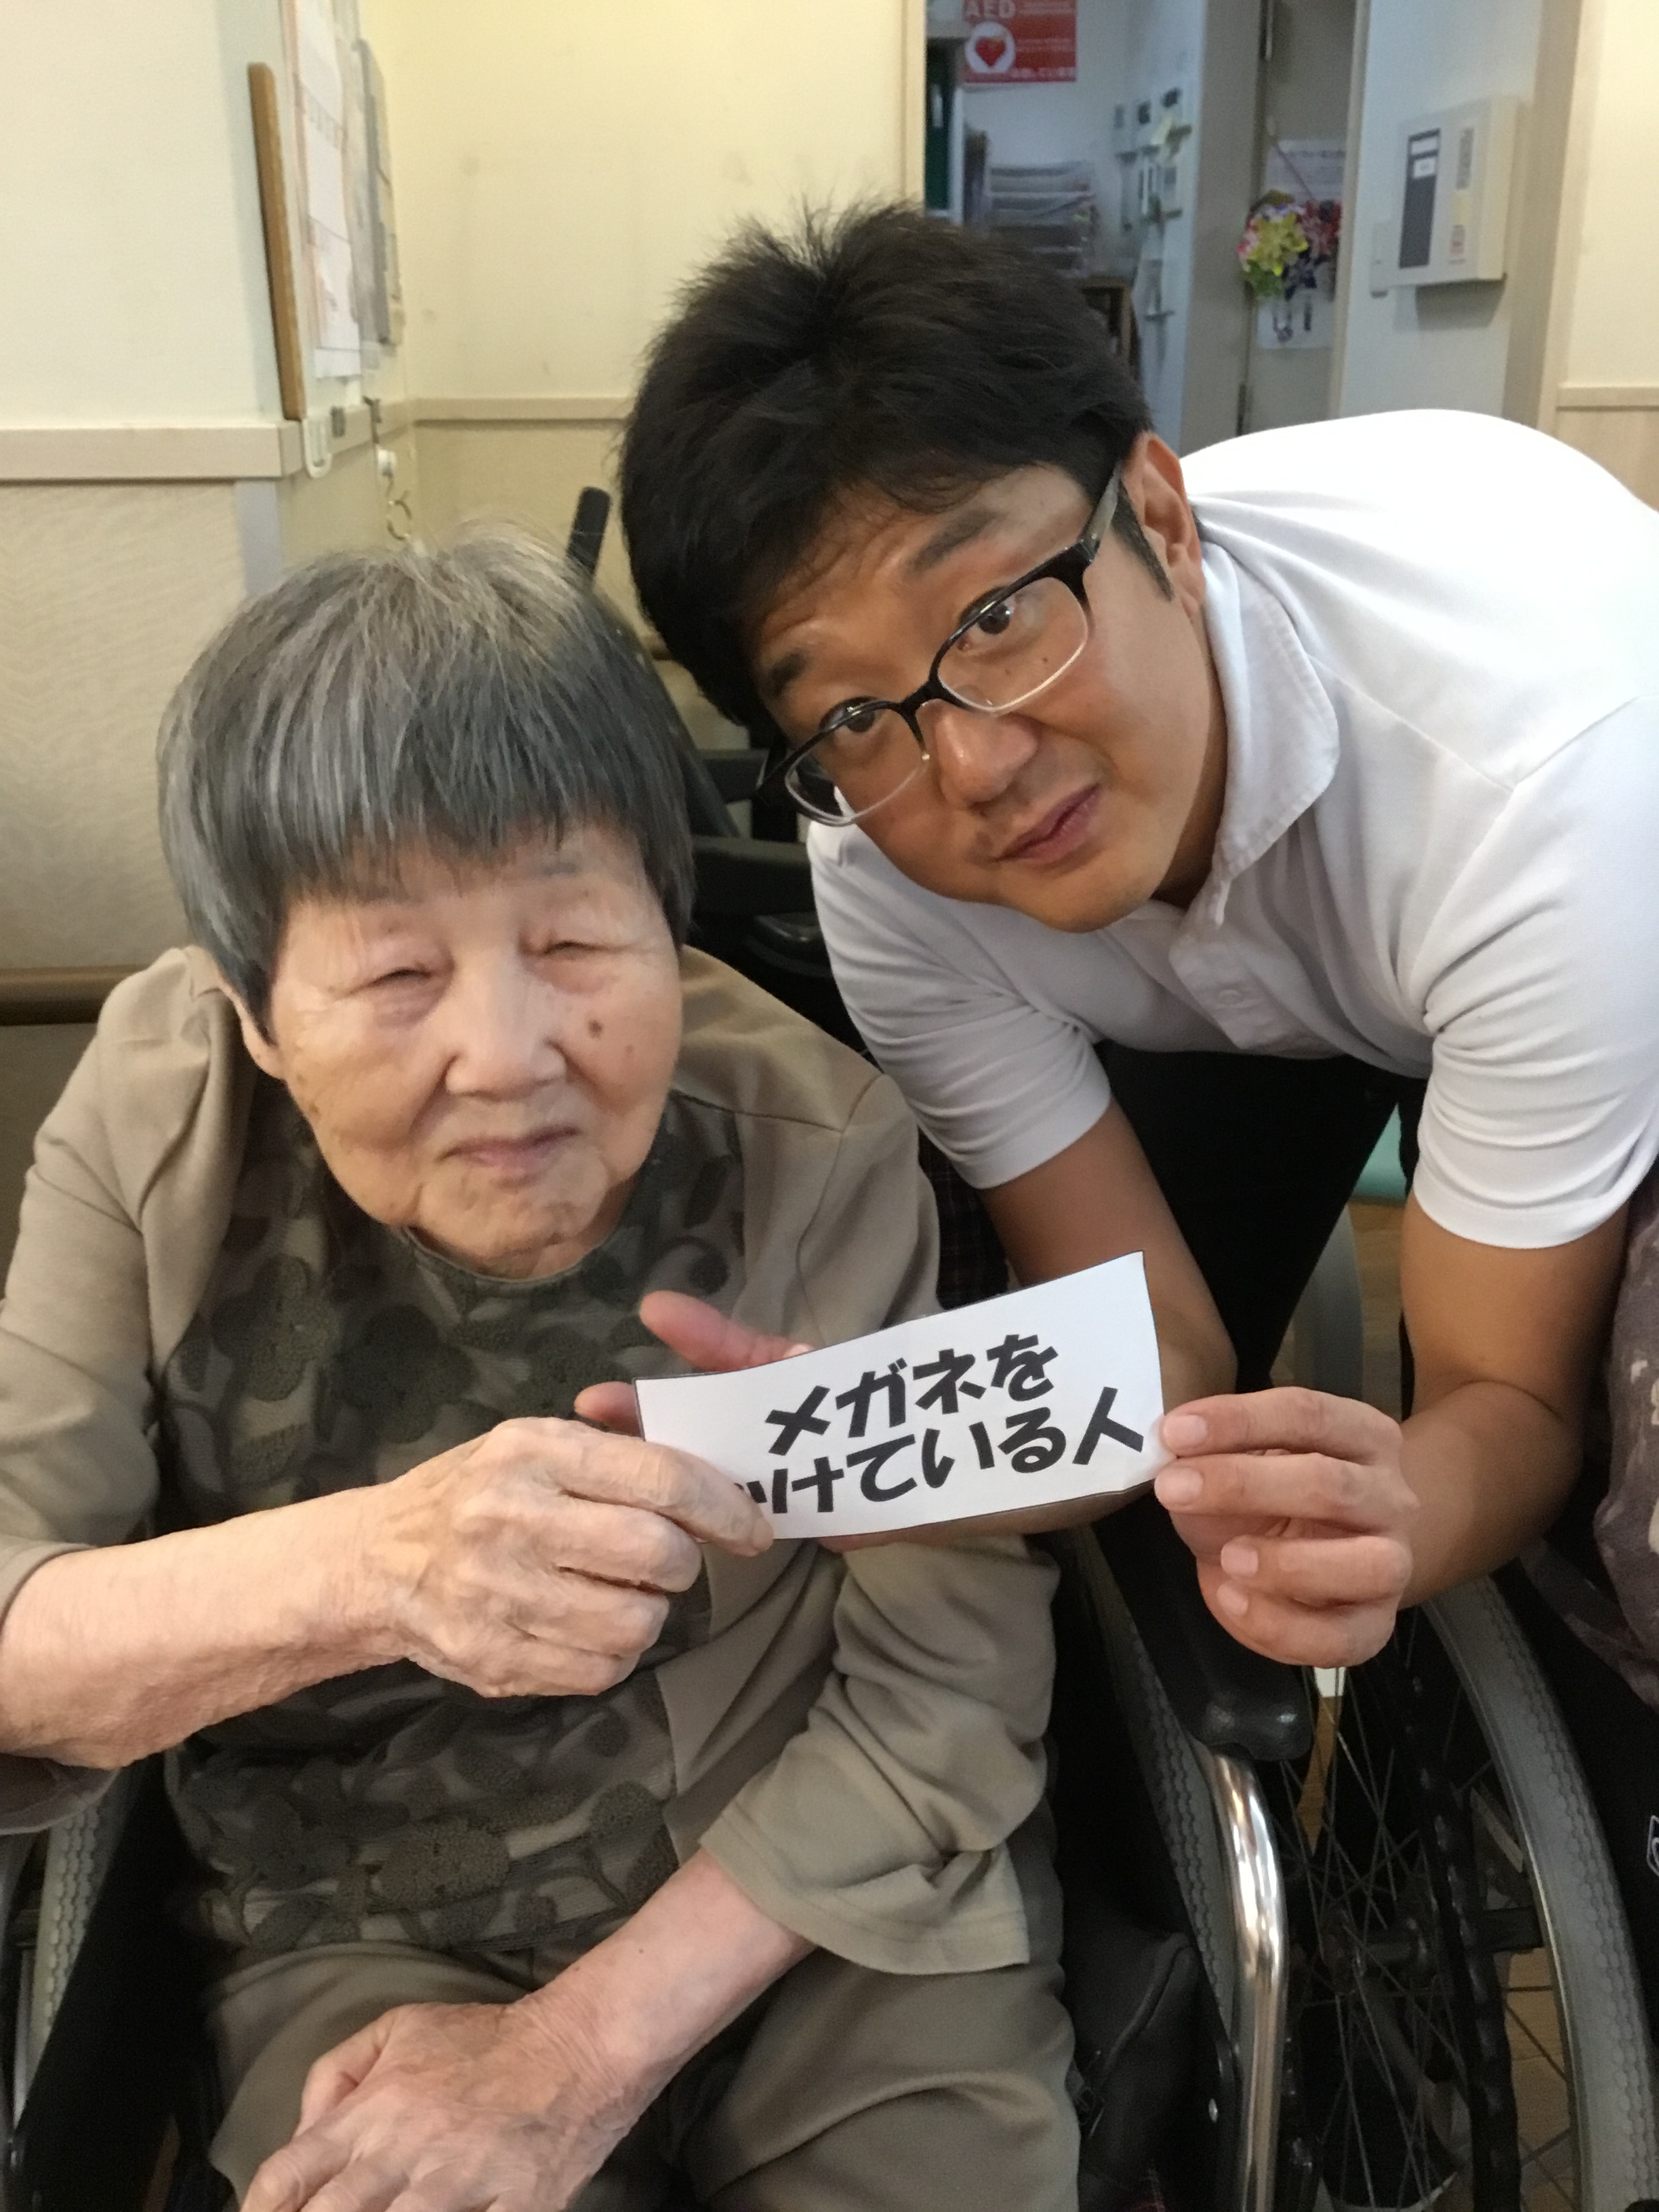 AED
メガネを
つけている人